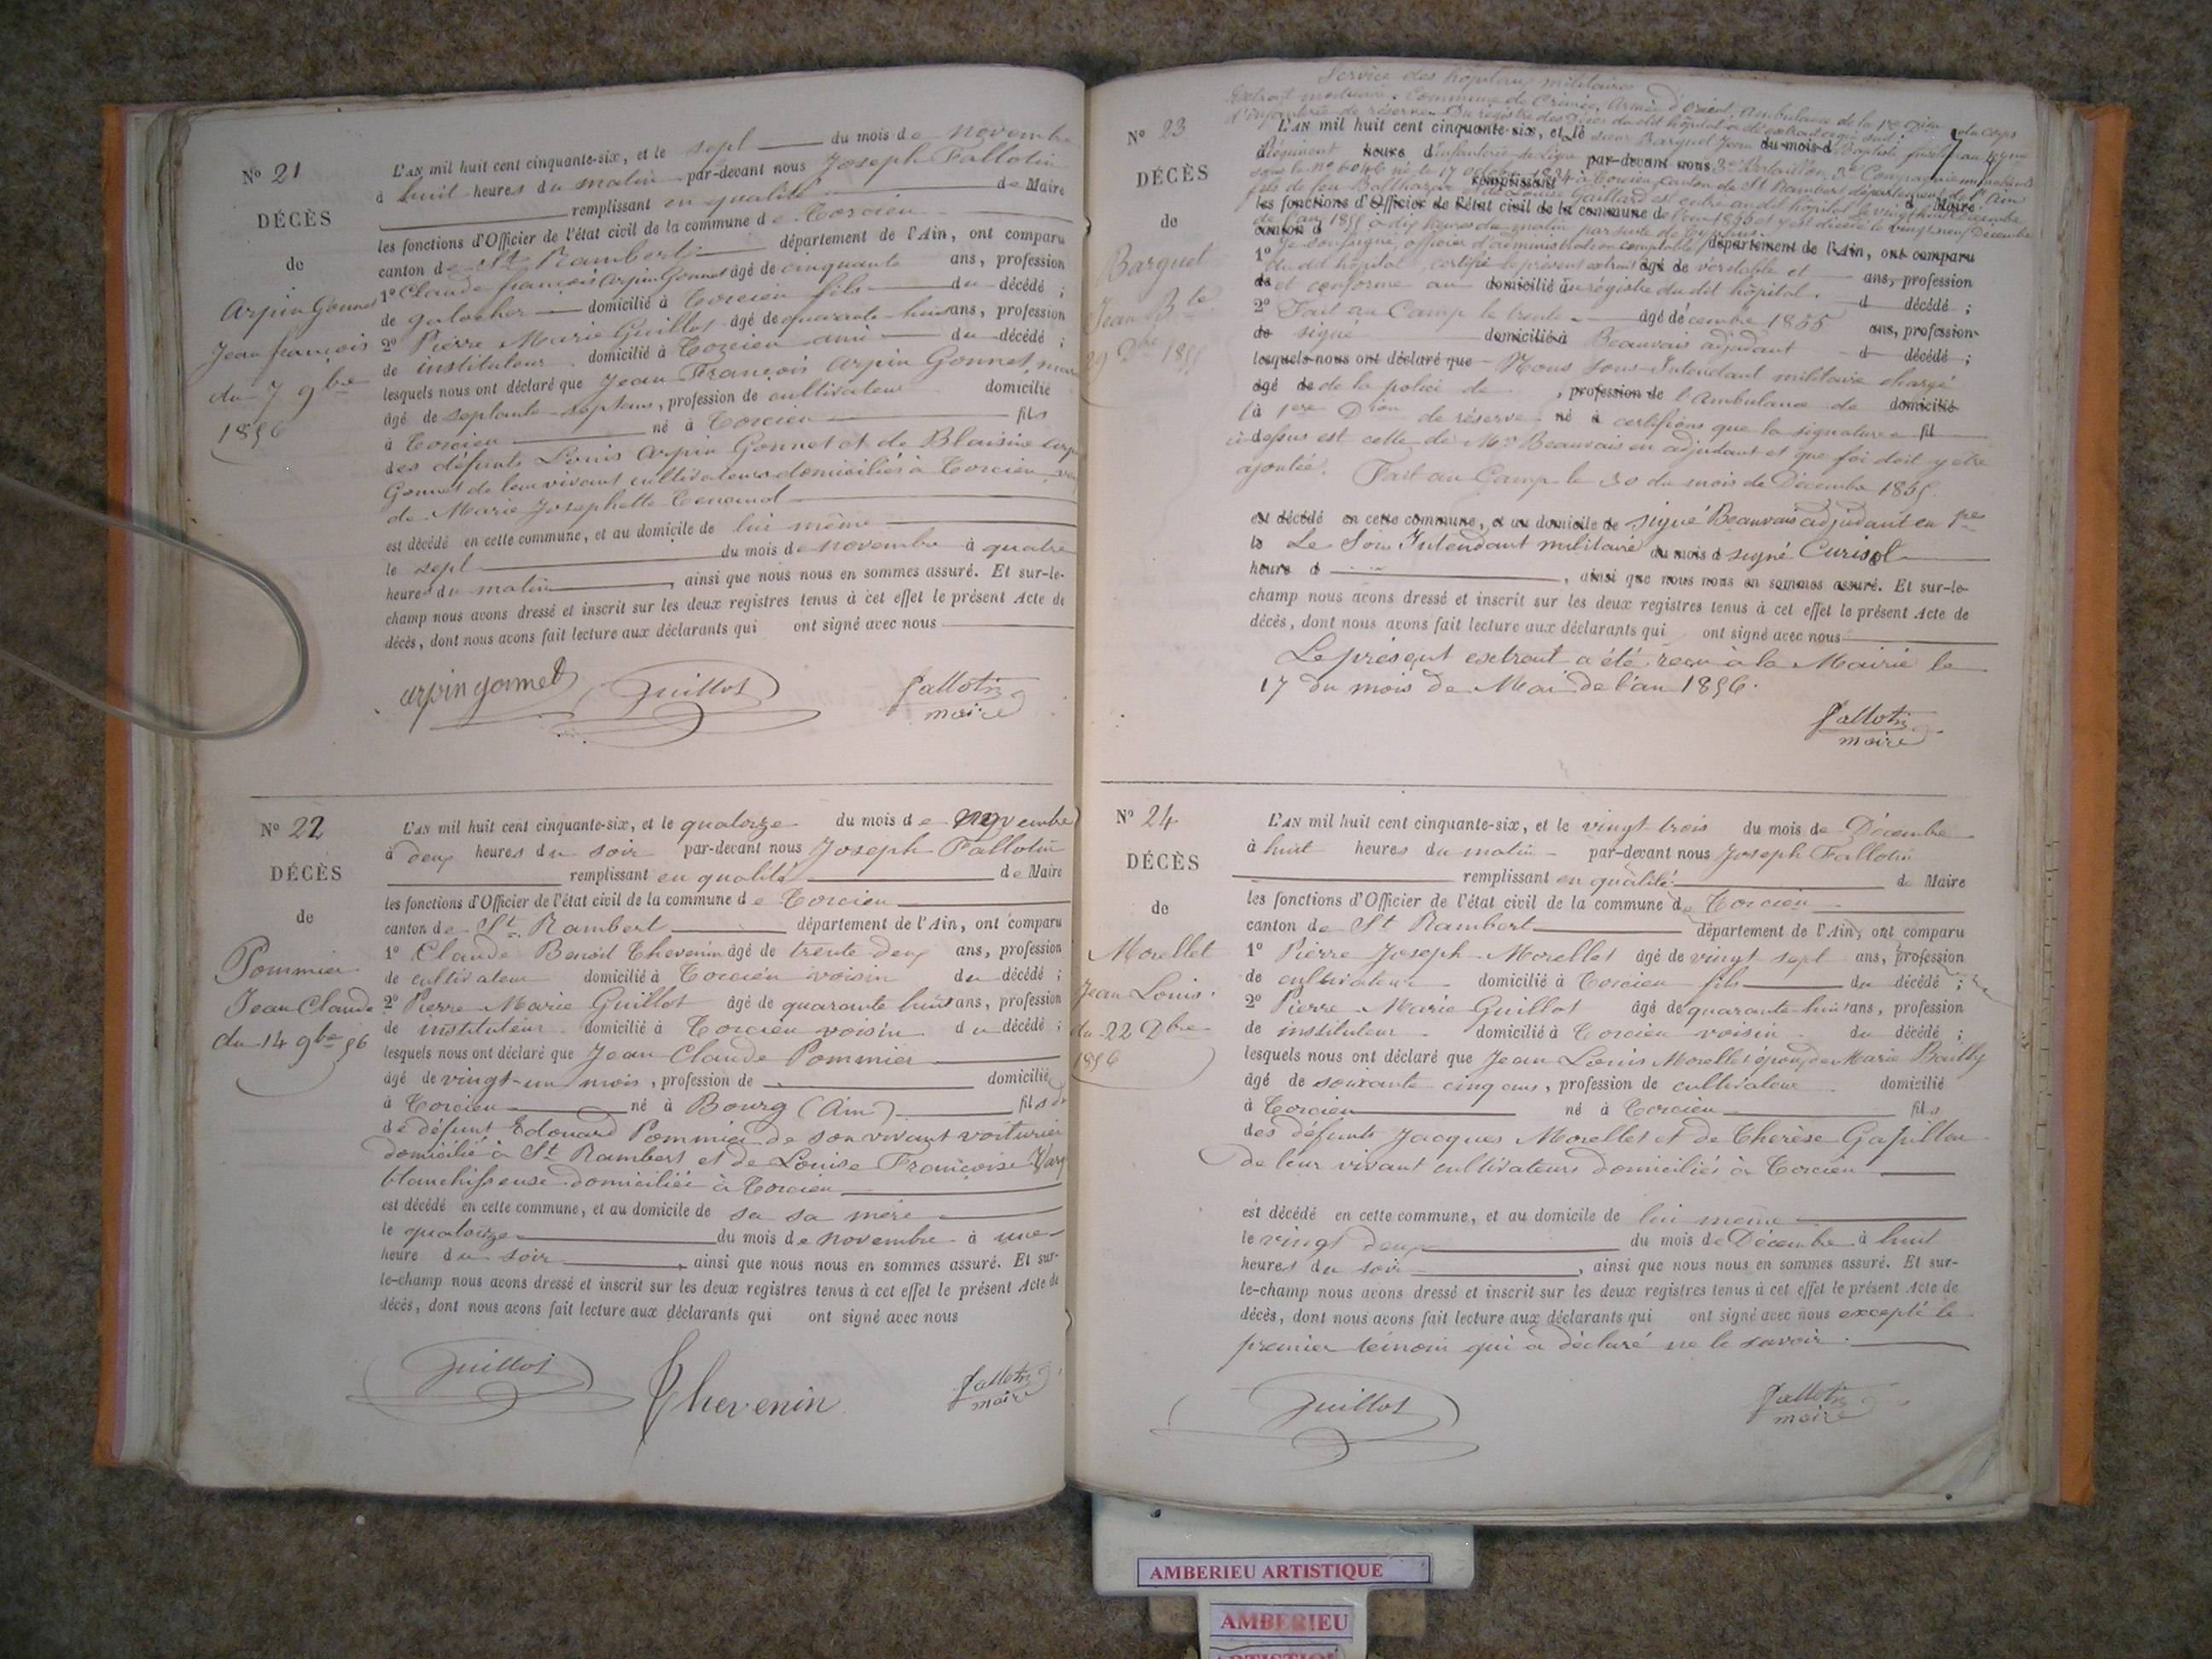 N° 21
DÉCÈS
de
Arpin Gonnet
Jean françois
du 7 9bre
1856
L'AN mil huit cent cinquante-six, et le sept du mois de novembre
à huit heures du matin par-devant nous Joseph Fallotin
remplissant en qualité de Maire
les fonctions d'Officier de l'état civil de la commune de Torcieu
canton de St Rambert département de l'Ain, ont comparu
1° Claude françois Arpin Gonnet âgé de cinquante ans, profession
de galocher domicilié à Torcieu fils du décédé ;
2° Pierre Marie Guillot âgé de quarante-huit ans, profession
de instituteur domicilié à Torcieu ami du décédé ;
lesquels nous ont déclaré que Jean François Arpin Gonnet,
âgé de septante-sept ans, profession de cultivateur domicilié
à Torcieu né à Torcieu fils
des défunts Louis Arpin Gonnet et de Blaisine
Gonnet de leur vivant cultivateurs domiciliés à Torcieu
de Marie Josephette Tenand
est décédé en cette commune, et au domicile de lui même
le sept du mois de novembre à quatre
heures du matin, ainsi que nous nous en sommes assuré. Et sur-le-
champ nous avons dressé et inscrit sur les deux registres tenus à cet effet le présent Acte de
décès, dont nous avons fait lecture aux déclarants qui ont signé avec nous
arpin gonnet Guillot fallotin
maire
N° 22
DÉCÈS
de
Pommier
Jean Claude
du 14 9bre 56
L'AN mil huit cent cinquante-six, et le quatorze du mois de novembre
à deux heures du soir par-devant nous Joseph Fallotin
remplissant en qualité de Maire
les fonctions d'Officier de l'état civil de la commune de Torcieu
canton de St Rambert département de l'Ain, ont comparu
1° Claude Benoit Thevenin âgé de trente deux ans, profession
de cultivateur domicilié à Torcieu voisin du décédé ;
2° Pierre Marie Guillot âgé de quarante huit ans, profession
de instituteur domicilié à Torcieu voisin du décédé ;
lesquels nous ont déclaré que Jean Claude Pommier
âgé de vingt-un mois, profession de domicilié
à Torcieu né à Bourg (Ain) fils
de défunt Edouard Pommier de son vivant voiturier
domicilié à St Rambert et de Louise Françoise
blanchisseuse domiciliée à Torcieu
est décédé en cette commune, et au domicile de sa sa mère
le quatorze du mois de novembre à une
heure du soir, ainsi que nous nous en sommes assuré. Et sur-
le-champ nous avons dressé et inscrit sur les deux registres tenus à cet effet le présent Acte de
décès, dont nous avons fait lecture aux déclarants qui ont signé avec nous
Guillot Thevenin fallotin
maire
Service des hôpitaux militaires
Extrait mortuaire. Commune de Crimée, Armée d'Orient, Ambulance de la 1re Don du corps
d'infanterie de réserve. Du registre des décès du dit hôpital a été extrait ce qui suit :
N° 23
DÉCÈS
de
Barquet
Jean Bte
29 Xbre 1855
L'AN mil huit cent cinquante-six, et le sieur Barquet Jean du mois d Baptiste fusilier au
Régiment heure d'infanterie de ligne par-devant nous 3e Bataillon, 3e Compagnie
sous le n° 6046 né le 17 octobre 1834 à Torcieu canton de St Rambert département de l'Ain remplissant
fils de feu Balthazar et de Louise Gaillard est entré au dit hôpital le vingt huit Décembre
les fonctions d'Officier de l'état civil de la commune de d Maire
de l'an 1855 à dix heures du matin par suite de et y est décédé le vingt neuf Décembre
canton d
1° Je soussigné, officier d'administration comptable département de l'Ain, ont comparu
du dit hôpital, certifie le présent extrait âgé de véritable et ans, profession
de et conforme au domicilié à registre du dit hôpital. d décédé ;
2° Fait au Camp le trente âgé décembre 1855 ans, profession
de signé domicilié à Beauvais adjudant d décédé ;
lesquels nous ont déclaré que Nous Sous-Intendant militaire chargé
âgé de de la police de, profession de l'Ambulance de domicilié
la 1ere Don de réserve né à certifions que la signature fil
ci-dessus est celle de Mr Beauvais en adjudant et que foi doit y être
ajoutée. Fait au Camp le 30 du mois de Décembre 1855.
est décédé en cette commune, et au domicile de signé Beauvais adjudant en 1er
le Le Sous Intendant militaire du mois d signé Curisol
heure d, ainsi que nous nous en sommes assuré. Et sur-le-
champ nous avons dressé et inscrit sur les deux registres tenus à cet effet le présent Acte de
décès, dont nous avons fait lecture aux déclarants qui ont signé avec nous
Le présent extrait a été reçu à la Mairie le
17 du mois de Mai de l'an 1856.
fallotin
maire
N° 24
DÉCÈS
de
Morellet
Jean Louis
du 22 Xbre
1856
L'AN mil huit cent cinquante-six, et le vingt trois du mois de Décembre
à huit heures du matin par-devant nous Joseph Fallotin
remplissant en qualité de Maire
les fonctions d'Officier de l'état civil de la commune de Torcieu
canton de St Rambert département de l'Ain, ont comparu
1° Pierre Joseph Morellet âgé de vingt sept ans, profession
de cultivateur domicilié à Torcieu fils du décédé ;
2° Pierre Marie Guillot âgé de quarante-huit ans, profession
de instituteur domicilié à Torcieu voisin du décédé ;
lesquels nous ont déclaré que Jean Louis Morellet époux de Marie Bailly
âgé de soixante cinq ans, profession de cultivateur domicilié
à Torcieu né à Torcieu fils
des défunts Jacques Morellet et de Therèse
de leur vivant cultivateurs domiciliés à Torcieu
est décédé en cette commune, et au domicile de lui même
le vingt deux du mois de Décembre à huit
heures du soir, ainsi que nous nous en sommes assuré. Et sur-
le-champ nous avons dressé et inscrit sur les deux registres tenus à cet effet le présent Acte de
décès, dont nous avons fait lecture aux déclarants qui ont signé avec nous excepté le
premier témoin qui a déclaré ne le savoir.
Guillot fallotin
maire
AMBERIEU ARTISTIQUE
AMBERIEU
ARTISTIQUE